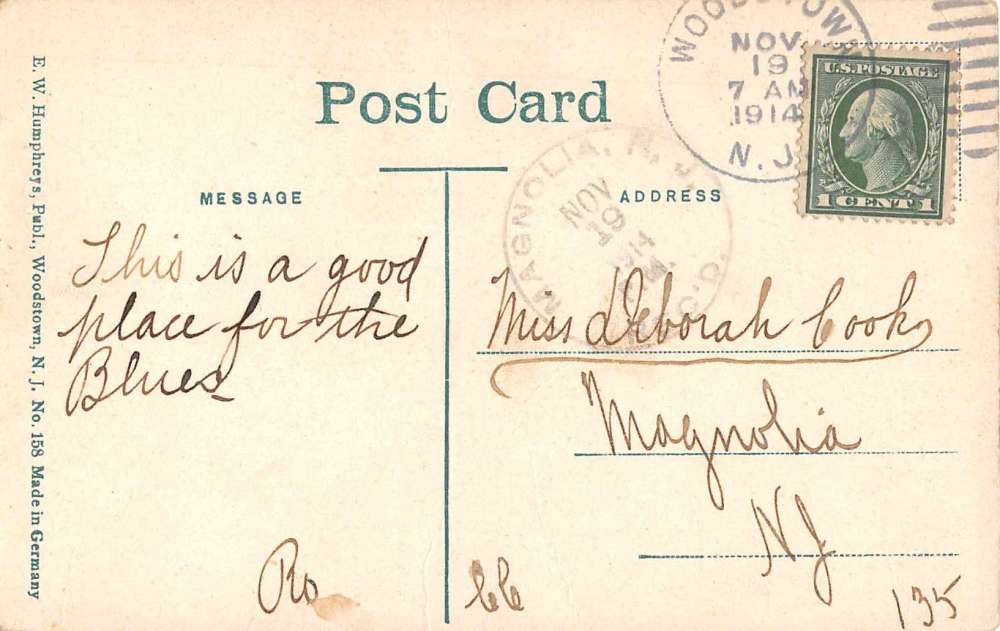 Post Card
MESSAGE
This is a good
place for the
Blues
Ro
ADDRESS
Miss Deborah Cook
Magnolia
NJ
66
135
WOODSTOWN
NOV
19
7 AM
1914
N.J.
U.S. POSTAGE
1 CENT 1
MAGNOLIA, N. J.
NOV
19
REC'D.
E. W. Humphreys, Publ., Woodstown, N. J. No. 158 Made in Germany